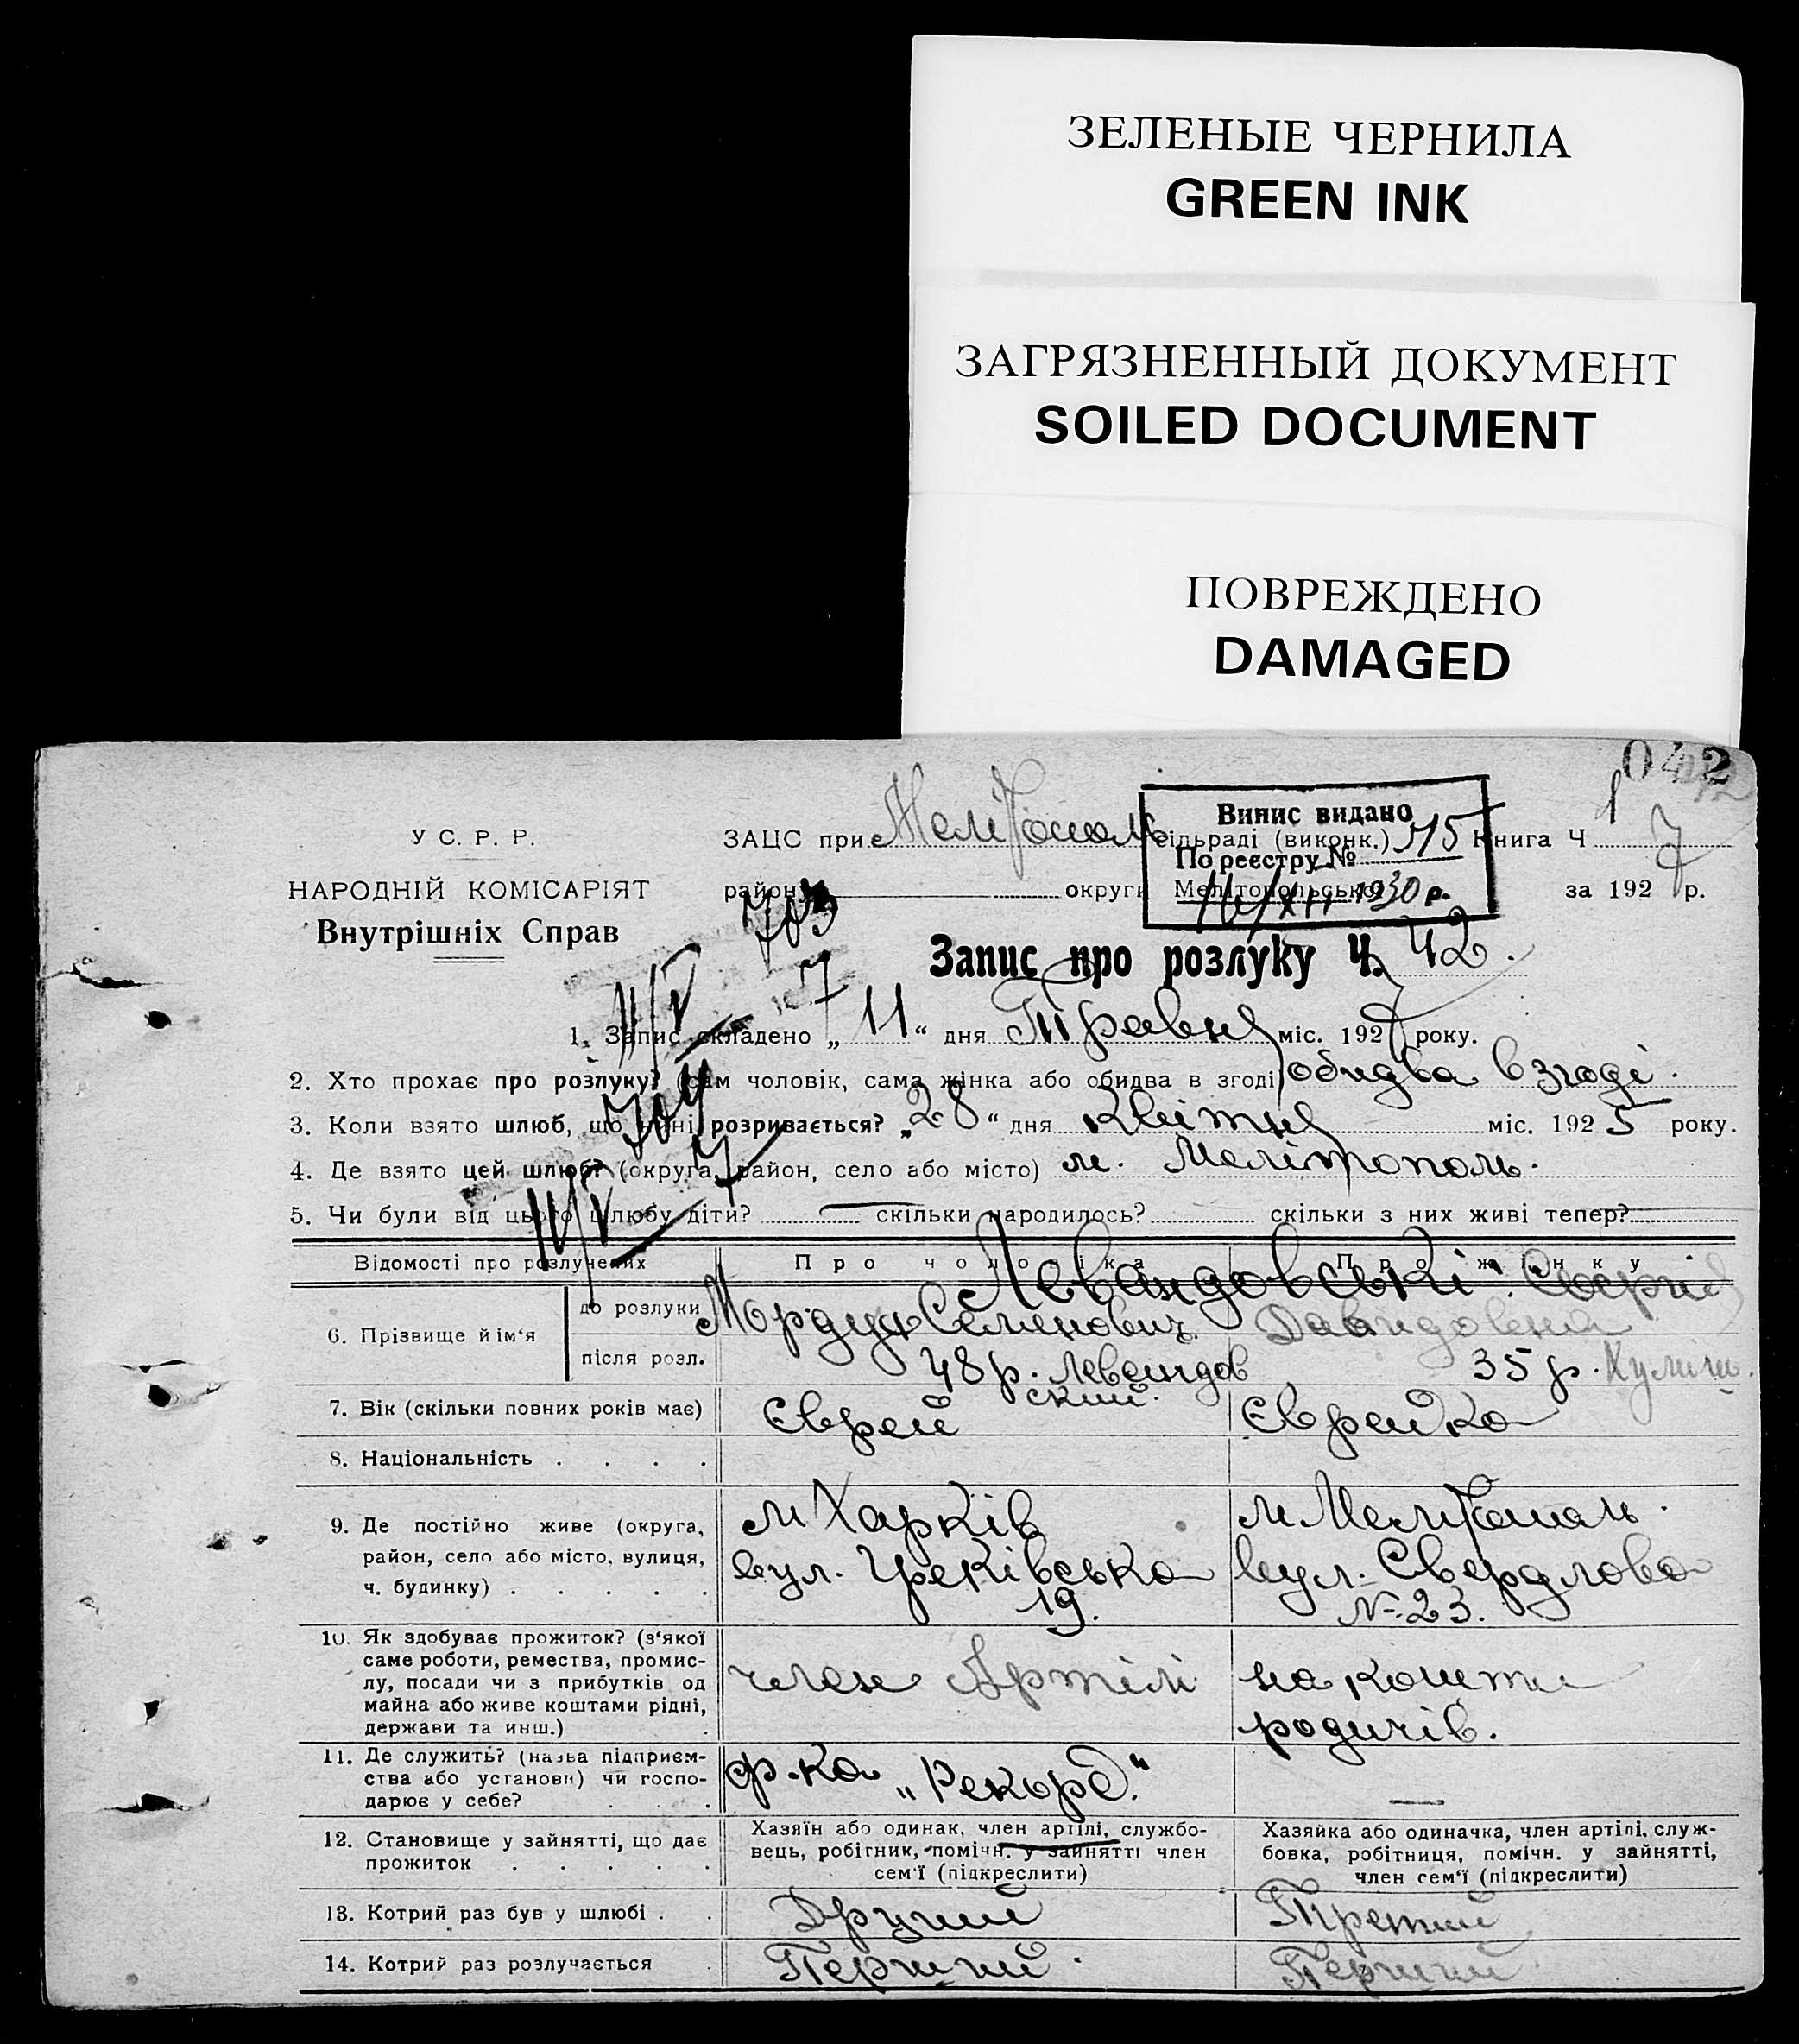 ЗЕЛЕНЫЕ ЧЕРНИЛА
GREEN INK
ЗАГРЯЗНЕННЫЙ ДОКУМЕНТ
SOILED DOCUMENT
ПОВРЕЖДЕНО
DAMAGED
042
У С. Р. Р.
НАРОДНІЙ КОМІСАРІЯТ
Внутрішніх Справ
ЗАЦС при Мелітополь сільраді (виконк.) Книга Ч 1
району округи Мелітопольської за 1927 р.
Випис видано
По реєстру № 515
16/XII 1930 р.
703
11/V 7
704
11/V 7
Запис про розлуку Ч. 42.
1. Запис складено „11“ дня Травня міс. 1927 року.
2. Хто прохає про розлуку? (сам чоловік, сама жінка або обидва в згоді) обидва в згоді.
3. Коли взято шлюб, що нині розривається? „28“ дня Квітня міс. 1925 року.
4. Де взято цей шлюб? (округа, район, село або місто) м. Мелітополь.
5. Чи були від цього шлюбу діти? — скільки народилось? скільки з них живі тепер?
Відомості про розлучених Про чоловіка Про жінку
6. Прізвище й ім‘я до розлуки Левандовські Мордух Семенович Софія Давидовна
після розл. 48 р. Левандовский. 35 р.
7. Вік (скільки повних років має) Єврей Єврейка
8. Національність . . . .
9. Де постійно живе (округа, м Харків м Мелітополь.
район, село або місто, вулиця, вул. Свердлова
ч. будинку) . . . . . 19. № 23.
10. Як здобуває прожиток? (з‘якої
саме роботи, ремества, промис- член Артілі на кошти
лу, посади чи з прибутків од
майна або живе коштами рідні, родичів.
держави та инш.)
11. Де служить? (назва підприєм- ф-ка „Рекорд“.
ства або установи) чи госпо-
дарює у себе? —
12. Становище у зайнятті, що дає
прожиток . . . . .
Хазяїн або одинак, член артілі, службо-
вець, робітник, помічн. у зайнятті член
сем‘ї (підкреслити)
Хазяйка або одиначка, член артілі, служ-
бовка, робітниця, помічн. у зайнятті,
член сем‘ї (підкреслити)
13. Котрий раз був у шлюбі . . Другий Третий
14. Котрий раз розлучається Перший. Перший